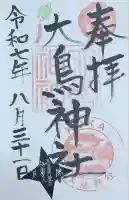 奉拝
大鳥神社
令和七年 八月三十一日